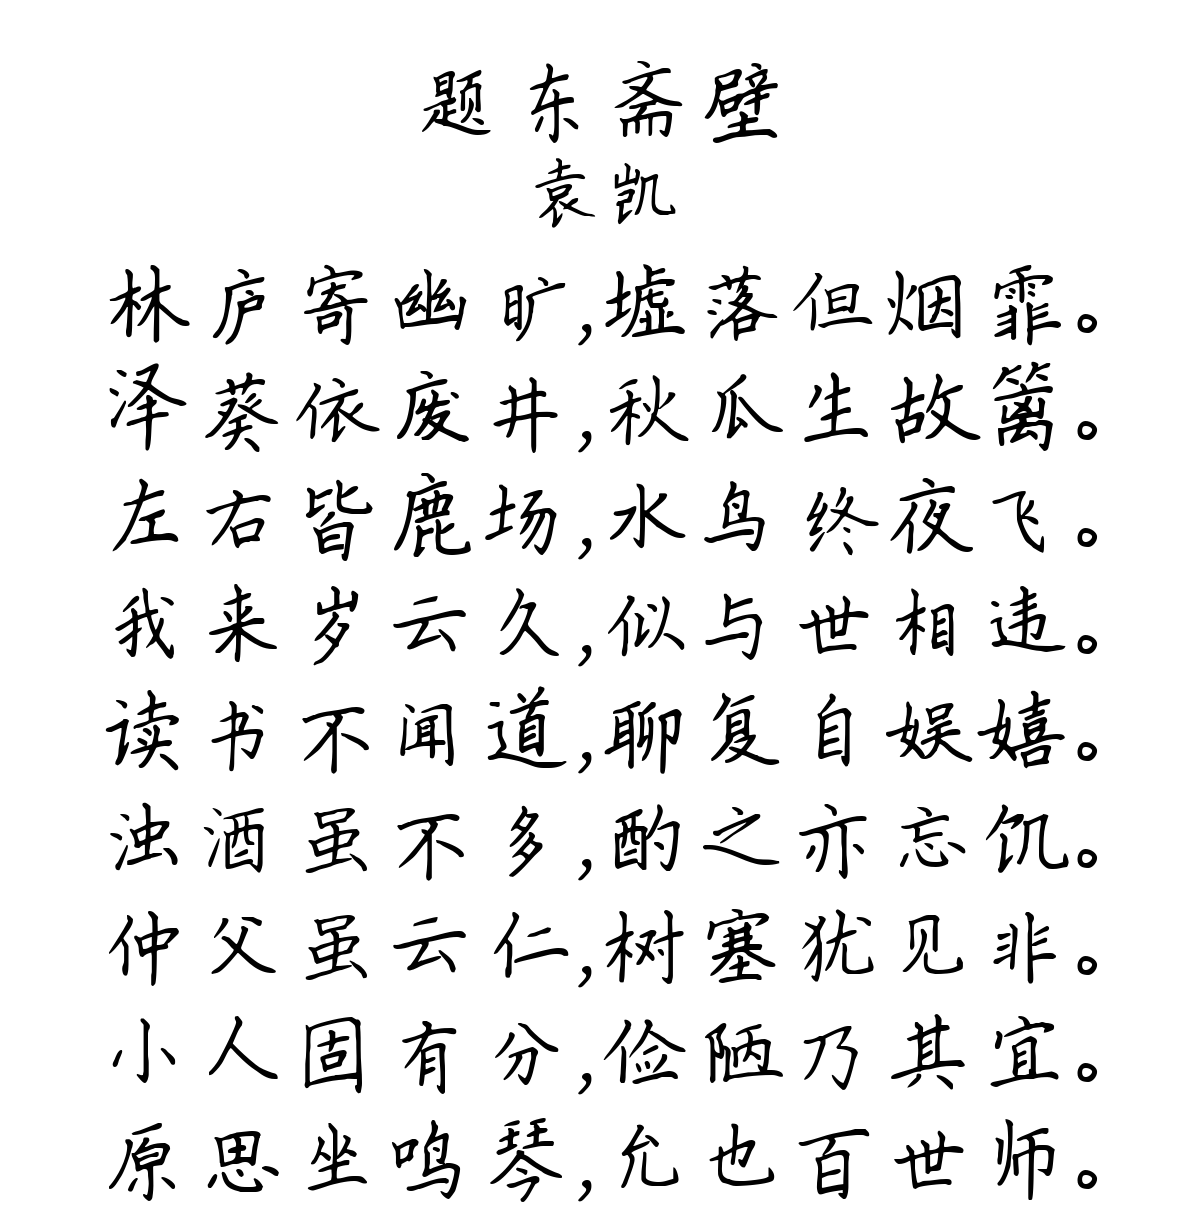 题东斋壁
袁凯
林庐寄幽旷,墟落但烟霏。
泽葵依废井,秋瓜生故篱。
左右皆鹿场,水鸟终夜飞。
我来岁云久,似与世相违。
读书不闻道,聊复自娱嬉。
浊酒虽不多,酌之亦忘饥。
仲父虽云仁,树塞犹见非。
小人固有分,俭陋乃其宜。
原思坐鸣琴,允也百世师。